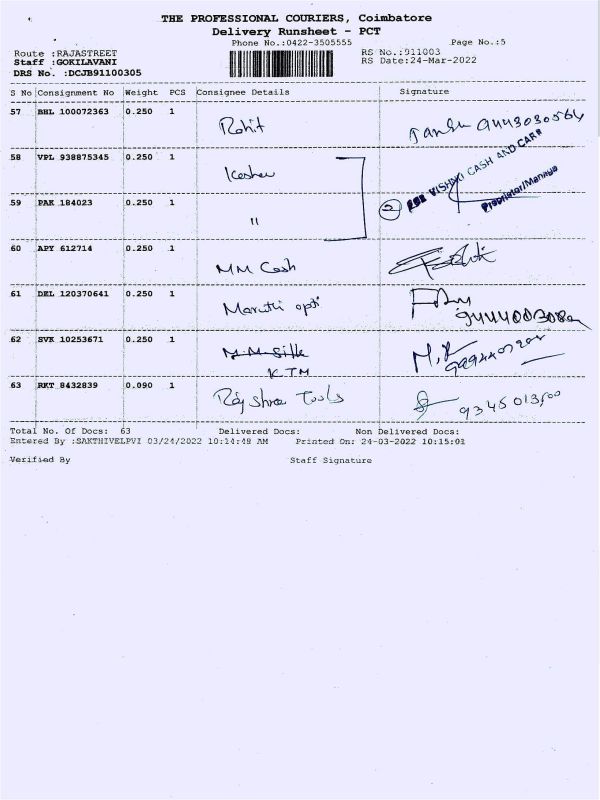 THE PROFESSIONAL COURIERS, Coimbatore
Delivery Runsheet - PCT
Phone No.:0422-3505555 Page No.:5
Route :RAJASTREET RS No.:911003
Staff :GOKILAVANI RS Date:24-Mar-2022
DRS No. :DCJB91100305
S No Consignment No Weight PCS Consignee Details Signature
57 BHL 100072363 0.250 1 Rohit 9443030564
58 VPL 938875345 0.250 1 VISHAKI CASH AND CARR
59 PAK 184023 0.250 1 " 2 Proprietor/Manage
60 APY 612714 0.250 1 MM Cash
61 DEL 120370641 0.250 1 Maruthi opti
62 SVK 10253671 0.250 1 M M Silk
KTM
63 RKT 8432839 0.090 1 Raj shree Tools
Total No. Of Docs: 63 Delivered Docs: Non Delivered Docs:
Entered By :SAKTHIVELPVI 03/24/2022 10:14:48 AM Printed On: 24-03-2022 10:15:01
Verified By Staff Signature